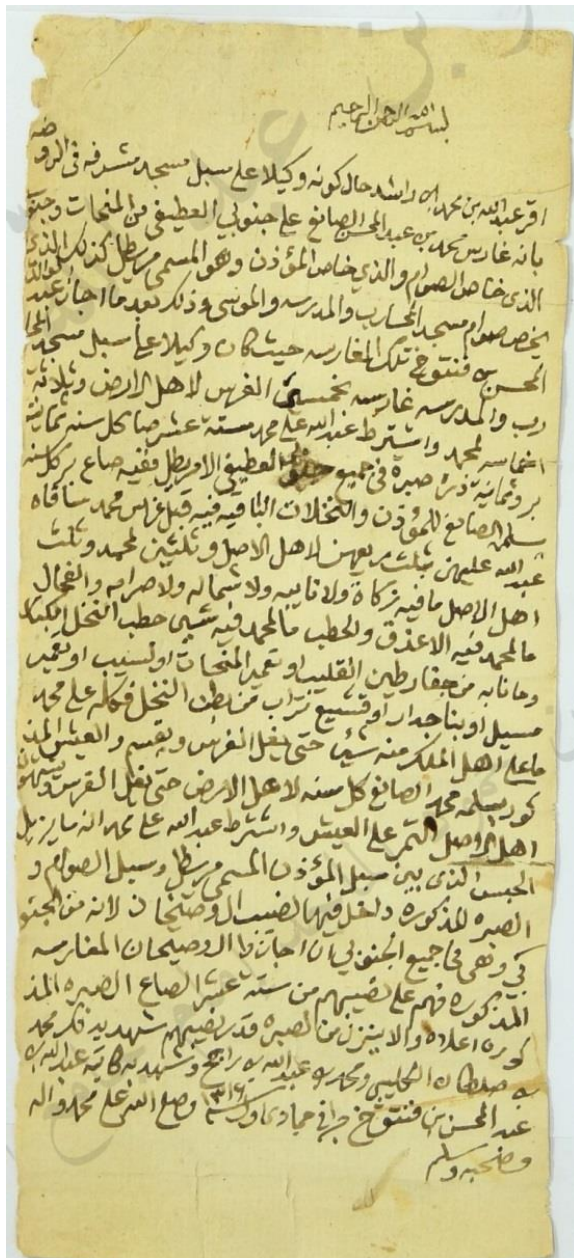 بسم الله الرحمن الرحيم
اقر عبدالله بن محمد بن راشد حال كونه وكيلا على سبل مسجد مشرفه فى الروضه
بانه غارس محمد بن عبد المحسن الصانع على جنوبي العطيفي من المنحات وجنوب
الذى خاص الصوام والذي خاص المؤذن وهو المسمى مريطل كذلك الذى
يخص صوام مسجد المحارب والمدرسه والموسى وذلك بعد ما اجاز عبد
المحسن بن فنتوخ تلك المغارسه حيث كان وكيلا على سبل مسجد المحا
رب والمدرسه غارسه بخمسين الغرس لاهل الارض وثلاثة
اخماسه لمحمد واشترط عبدالله على محمد ستة عشر صاع كل سنه ثمانية
بر وثمانية ذره صبرة فى جميع العطيفي الا مريطل ففيه صاع بر كل سنه
سلمه الصانع للمؤذن والنخلات الباقيه فيه قبل غراس محمد ساقاه
عبدالله عليهن بثلث ريعهن لاهل الاصل وثلثين لمحمد وثلث
اهل الاصل ما فيه زكاة ولا نايبه ولا شماله ولا صرامه والفحال
ما لمحمد فيه الا عذق والحطب ما لمحمد فيه شيى حطب النخل
وما نابه من حفار طين القليب او تعمير المنحات او لسيب او تعمير
مسيل او بنا جدار او تشييع تراب من بطن النخل فكله على محمد
ما على اهل الملك منه شيئ حتى يغل الغرس ويقسم والعيش المذ
كور يسلمه محمد الصانع كل سنه لاهل الارض حتى يغل الغرس
اهل الاصل التمر على العيش واشترط عبدالله على محمد انه ما يزيل
الحبس الذى بين سبل المؤذن المسمى مريطل وسبل الصوام و
الصبره المذكوره داخل فيها نصيب الروضيحان لانه من الجنو
بي وهى فى جميع الجنوبي ان اجازوا الروضيحان المغارسه
المذكوره فهم على نصيبهم من ستة عشر الصاع الصبره المذ
كوره اعلاه والا ينزل من الصبره قدر نصيبهم شهد بذلك محمد
بن سلطان الكليبي ومحمد بن عبدالله بن رابح وشهد به كاتبه عبدالله بن
عبد المحسن بن فنتوخ جرا فى جمادى ١٣١٦ وصلى الله على محمد واله
وصحبه وسلم